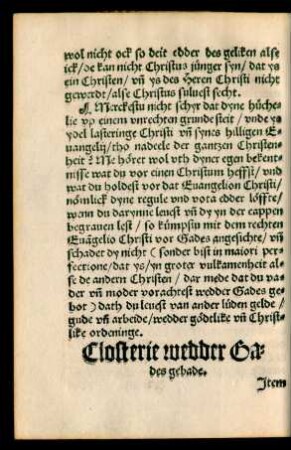 wol nicht ock so deit edder des geliken alse
ick/ de kan nicht Christus jünger syn/ dat ys
ein Christen/ vn̄ ys des Heren Christi nicht
gewerdt/ alse Christus sülvest secht.
¶ Merckestu nicht schyr dat dyne hüche-
lie vp einem vnrechten grunde steit/ vnde ys
ydel lasteringe Christi vn̄ synes hilligen E-
uangelij/ tho nadeele der gantzen Christen-
heit? Me höret wol vth dyner egen bekent-
nisse wat du vor einen Christum heffst/ vnd
wat du holdest vor dat Euangelion Christi/
nömlick dyne regule vnd vota edder löffte/
wenn du darynne leuest vn̄ dy yn der cappen
begrauen lest/ so kümpstu mit dem rechten
Euāgelio Christi vor Gades angesichte/ vn̄
schadet dy nicht (sonder bist in maiori per-
fectione/ dat ys/ yn groter vulkamenheit al-
se de andern Christen/ dar mede dat du va-
der vn̄ moder vorachtest wedder Gades ge-
bot) dath du leuest van ander lüden gelde/
gude vn̄ arbeide/ wedder gödtlike vn̄ Christ-
like ordeninge.
Closterie wedder Ga-
des gebade.
Item